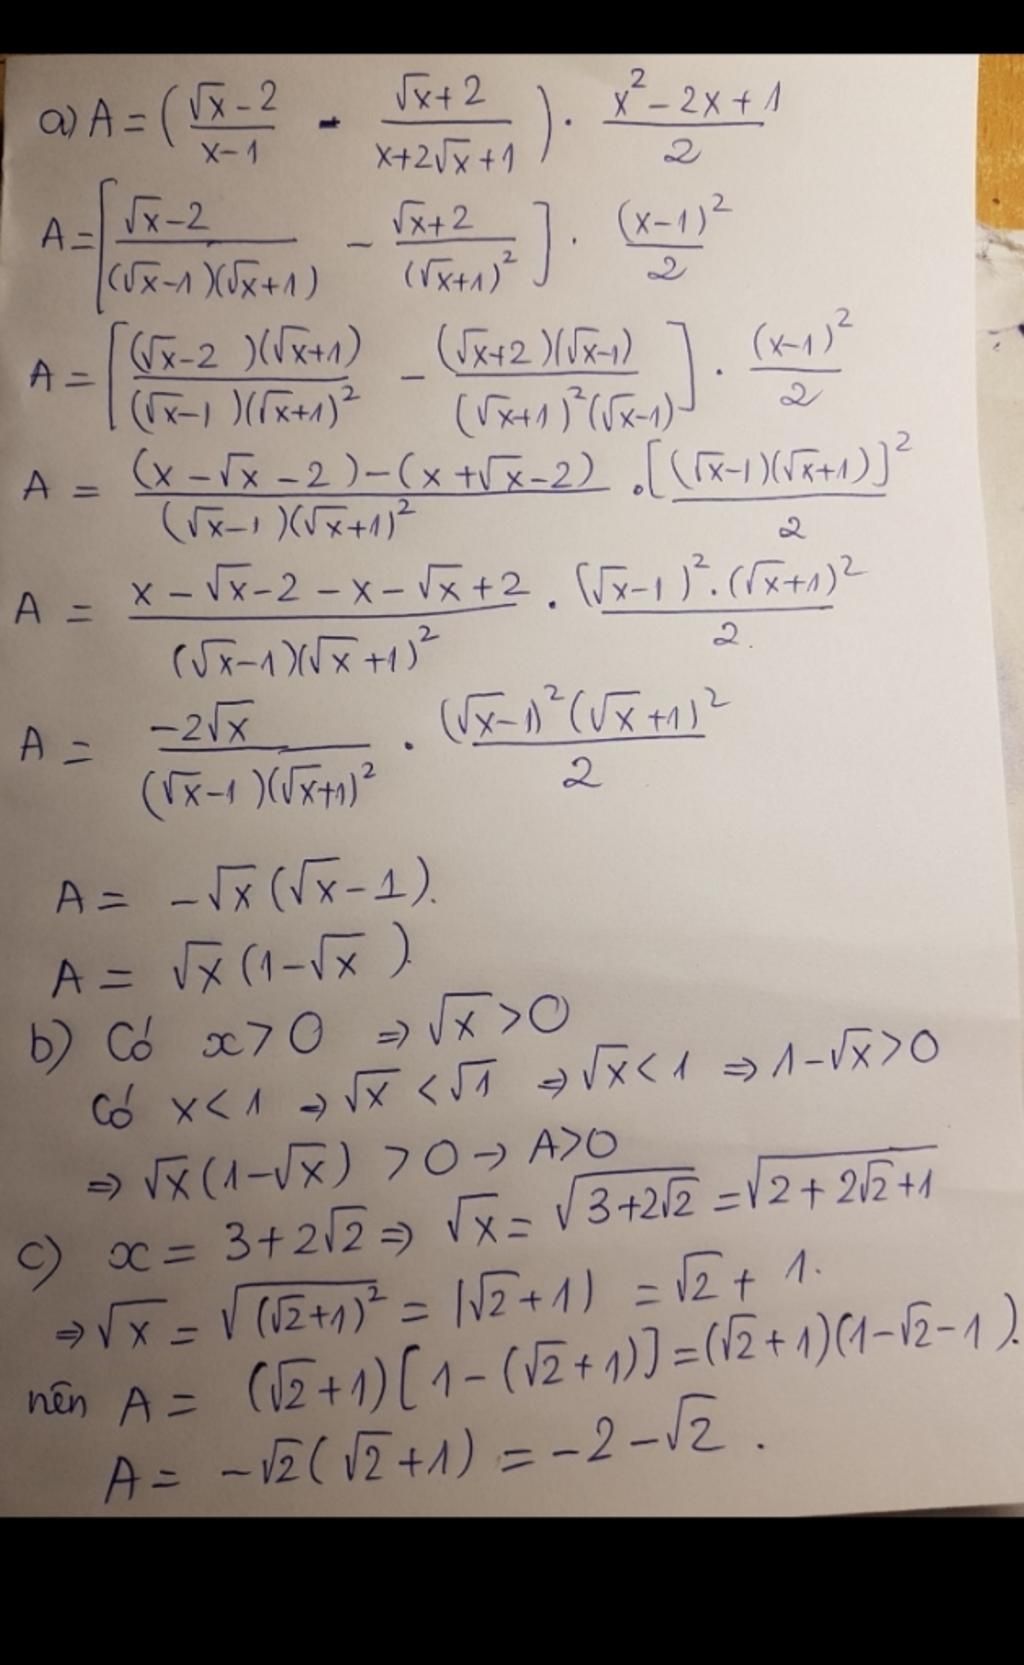 a) A = ( (√x - 2)/(x - 1) - (√x + 2)/(x + 2√x + 1) ) . (x² - 2x + 1)/2
A = [ (√x - 2)/((√x - 1)(√x + 1)) - (√x + 2)/(√x + 1)² ] . (x - 1)²/2
A = [ (√x - 2)(√x + 1)/((√x - 1)(√x + 1)²) - (√x + 2)(√x - 1)/((√x + 1)²(√x - 1)) ] . (x - 1)²/2
A = ((x - √x - 2) - (x + √x - 2))/((√x - 1)(√x + 1)²) . [(√x - 1)(√x + 1)]²/2
A = (x - √x - 2 - x - √x + 2)/((√x - 1)(√x + 1)²) . (√x - 1)² . (√x + 1)²/2.
A = -2√x/((√x - 1)(√x + 1)²) . (√x - 1)²(√x + 1)²/2
A = -√x (√x - 1).
A = √x (1 - √x ).
b) Có x > 0 ⇒ √x > 0
Có x < 1 ⇒ √x < √1 ⇒ √x < 1 ⇒ 1 - √x > 0
⇒ √x (1 - √x) > 0 → A > 0
c) x = 3 + 2√2 ⇒ √x = √(3 + 2√2) = √(2 + 2√2 + 1)
⇒ √x = √((√2 + 1)²) = |√2 + 1) = √2 + 1.
nên A = (√2 + 1) [ 1 - (√2 + 1)] = (√2 + 1)(1 - √2 - 1 ).
A = -√2 (√2 + 1) = -2 - √2 .